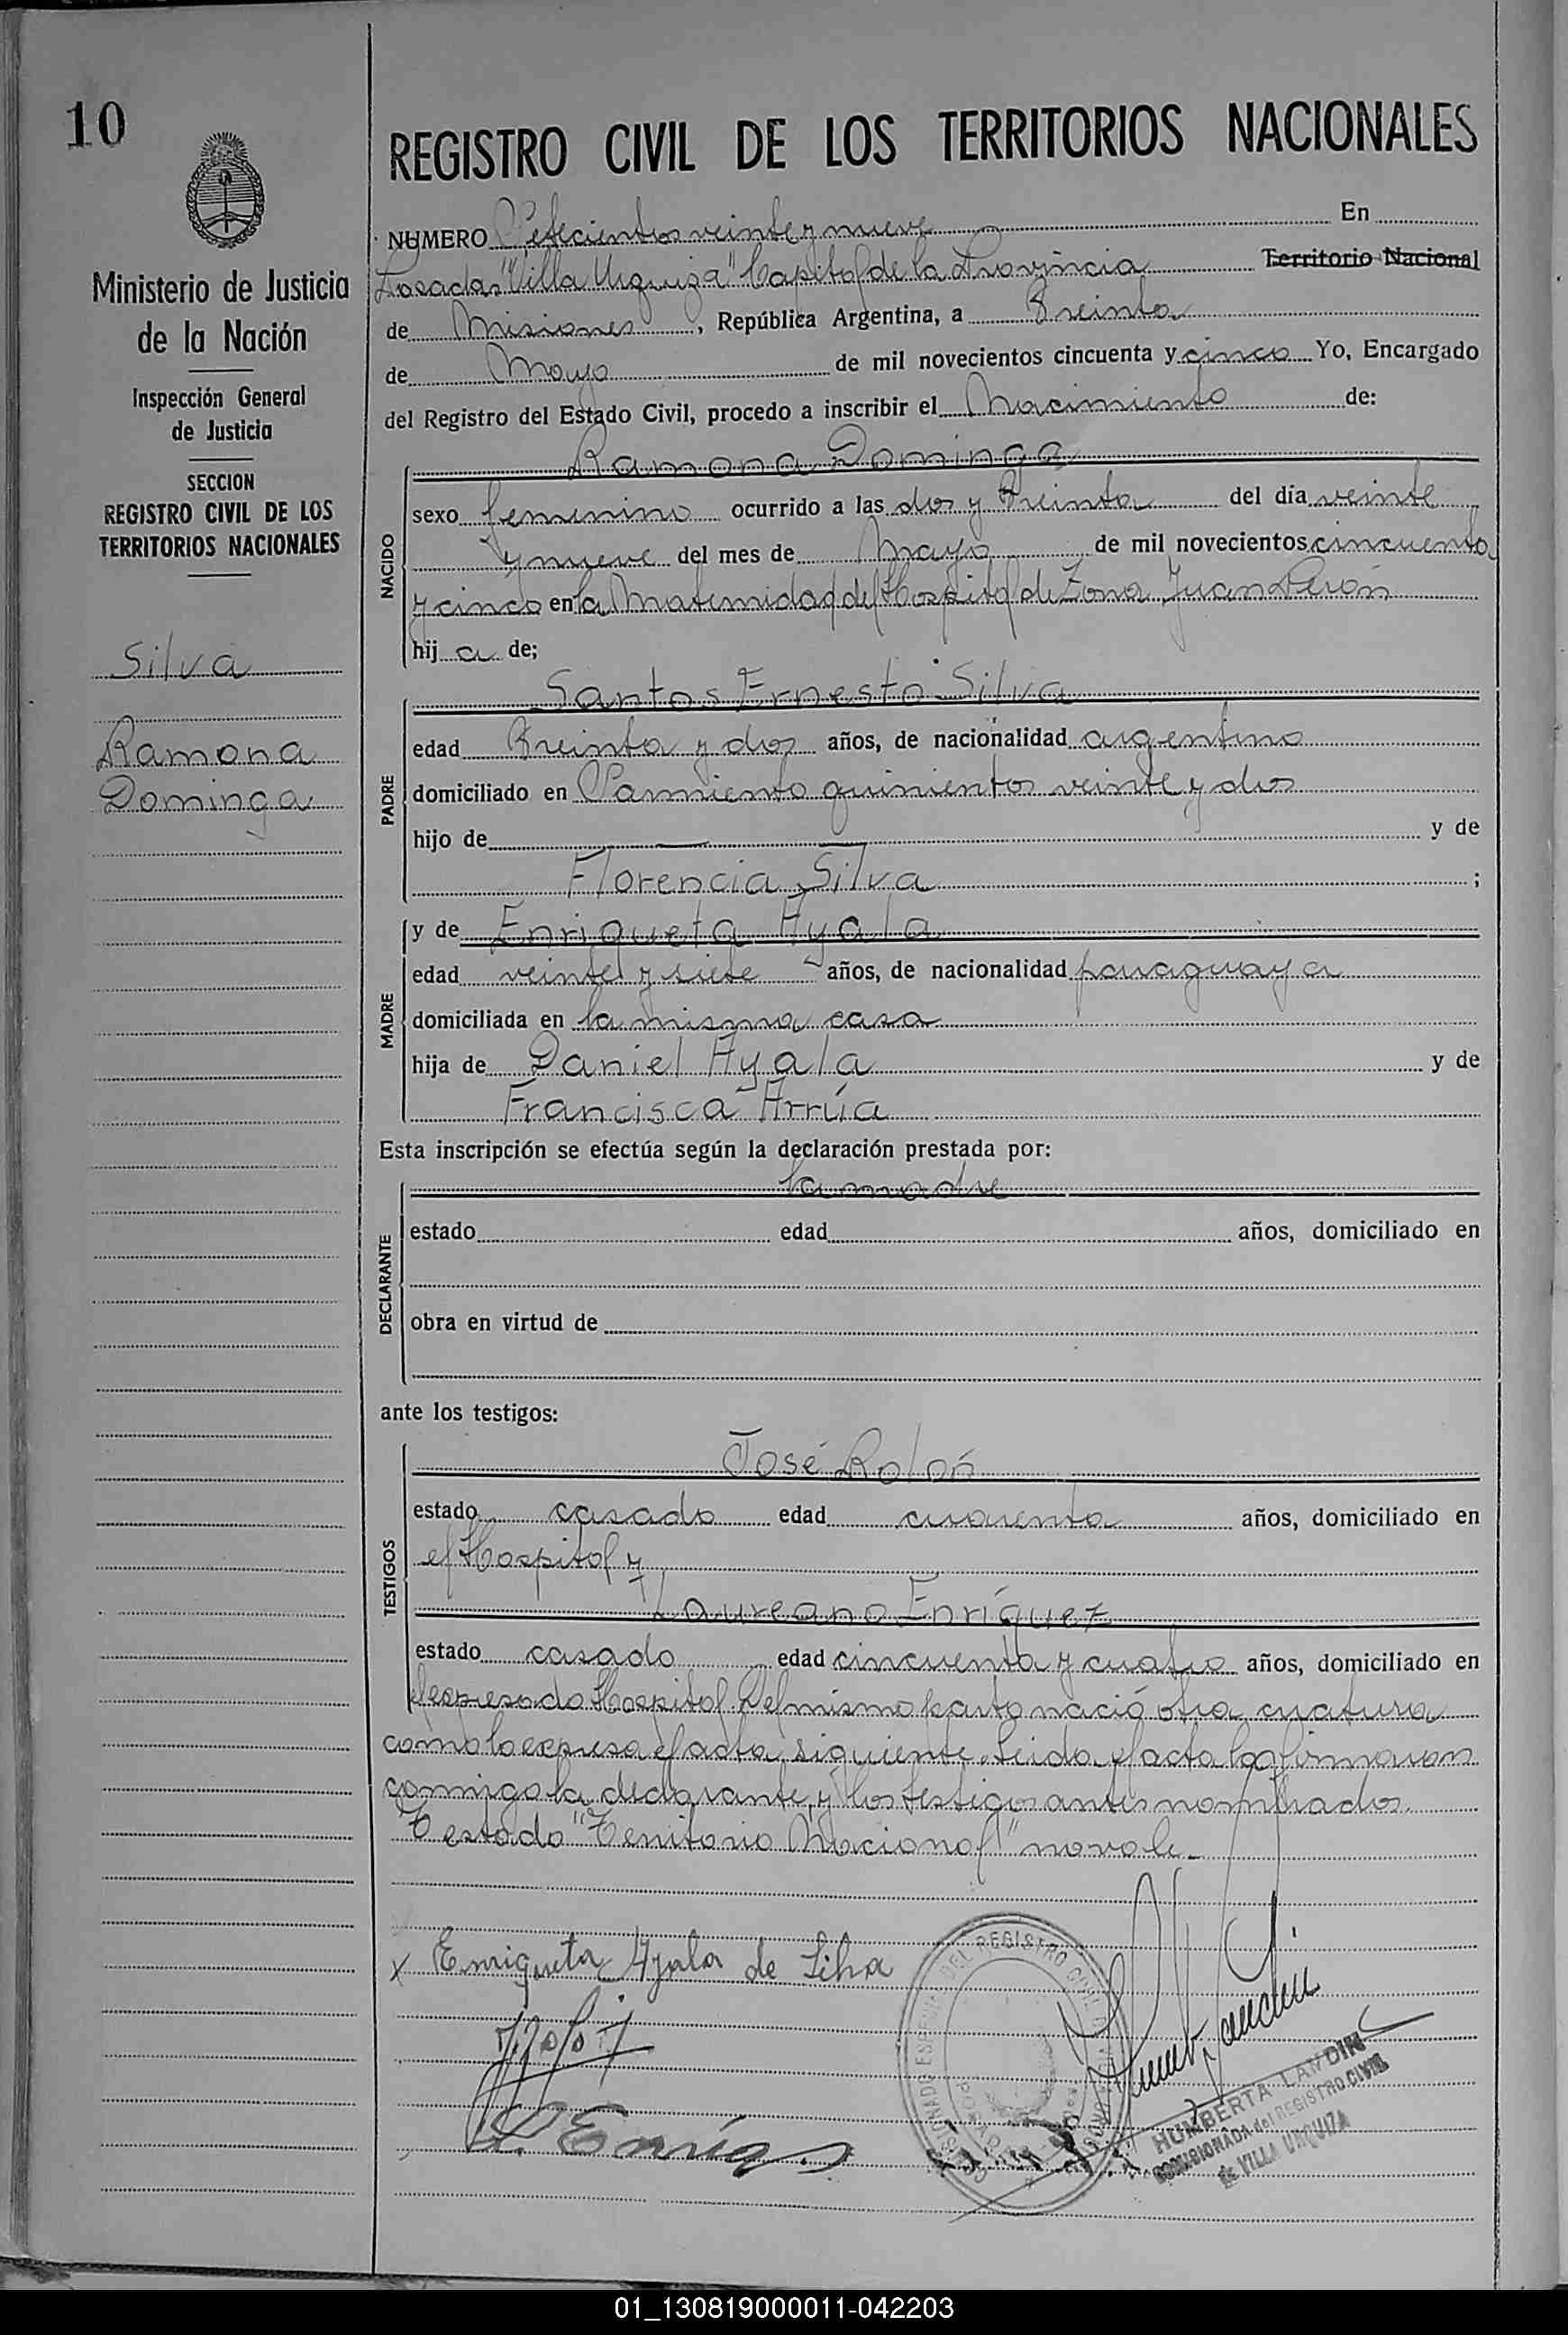 10
REGISTRO CIVIL DE LOS TERRITORIOS NACIONALES
Ministerio de Justicia
de la Nación
Inspección General
de Justicia
SECCION
REGISTRO CIVIL DE LOS
TERRITORIOS NACIONALES
Silva
Ramona
Dominga
NUMERO Setecientos veinte y nueve En
Posadas "Villa Urquiza" Capital de la Provincia Territorio Nacional
de Misiones, República Argentina, a Treinta
de Mayo de mil novecientos cincuenta y cinco Yo, Encargado
del Registro del Estado Civil, procedo a inscribir el Nacimiento de:
NACIDO
Ramona Dominga
sexo femenino ocurrido a las dos y treinta del día veinte
y nueve del mes de Mayo de mil novecientos cincuenta
y cinco en la Maternidad del Hospital de Zona Juan Perón
hij a de;
PADRE
Santos Ernesto Silva
edad Treinta y dos años, de nacionalidad argentino
domiciliado en Sarmiento quinientos veinte y dos
hijo de — y de
Florencia Silva ;
MADRE
y de Enriqueta Ayala
edad veinte y siete años, de nacionalidad paraguaya
domiciliada en la misma casa
hija de Daniel Ayala y de
Francisca Arrúa
Esta inscripción se efectúa según la declaración prestada por:
DECLARANTE
la madre
estado edad años, domiciliado en
obra en virtud de
ante los testigos:
TESTIGOS
José Rolón
estado casado edad cuarenta años, domiciliado en
el Hospital y
Laureano Enríquez
estado casado edad cincuenta y cuatro años, domiciliado en
el expresado Hospital. Del mismo parto nació otra criatura
como lo expresa el acta siguiente. Leida el acta la firmaron
conmigo la declarante, y los testigos antes nombrados.
Testado "Territorio Nacional" no vale.-
x Enriqueta Ayala de Silva
L. Enríq
DEL REGISTRO CIVIL
HUMBERTA LANDIN
COMISIONADA del REGISTRO CIVIL
de VILLA URQUIZA
01_130819000011-042203